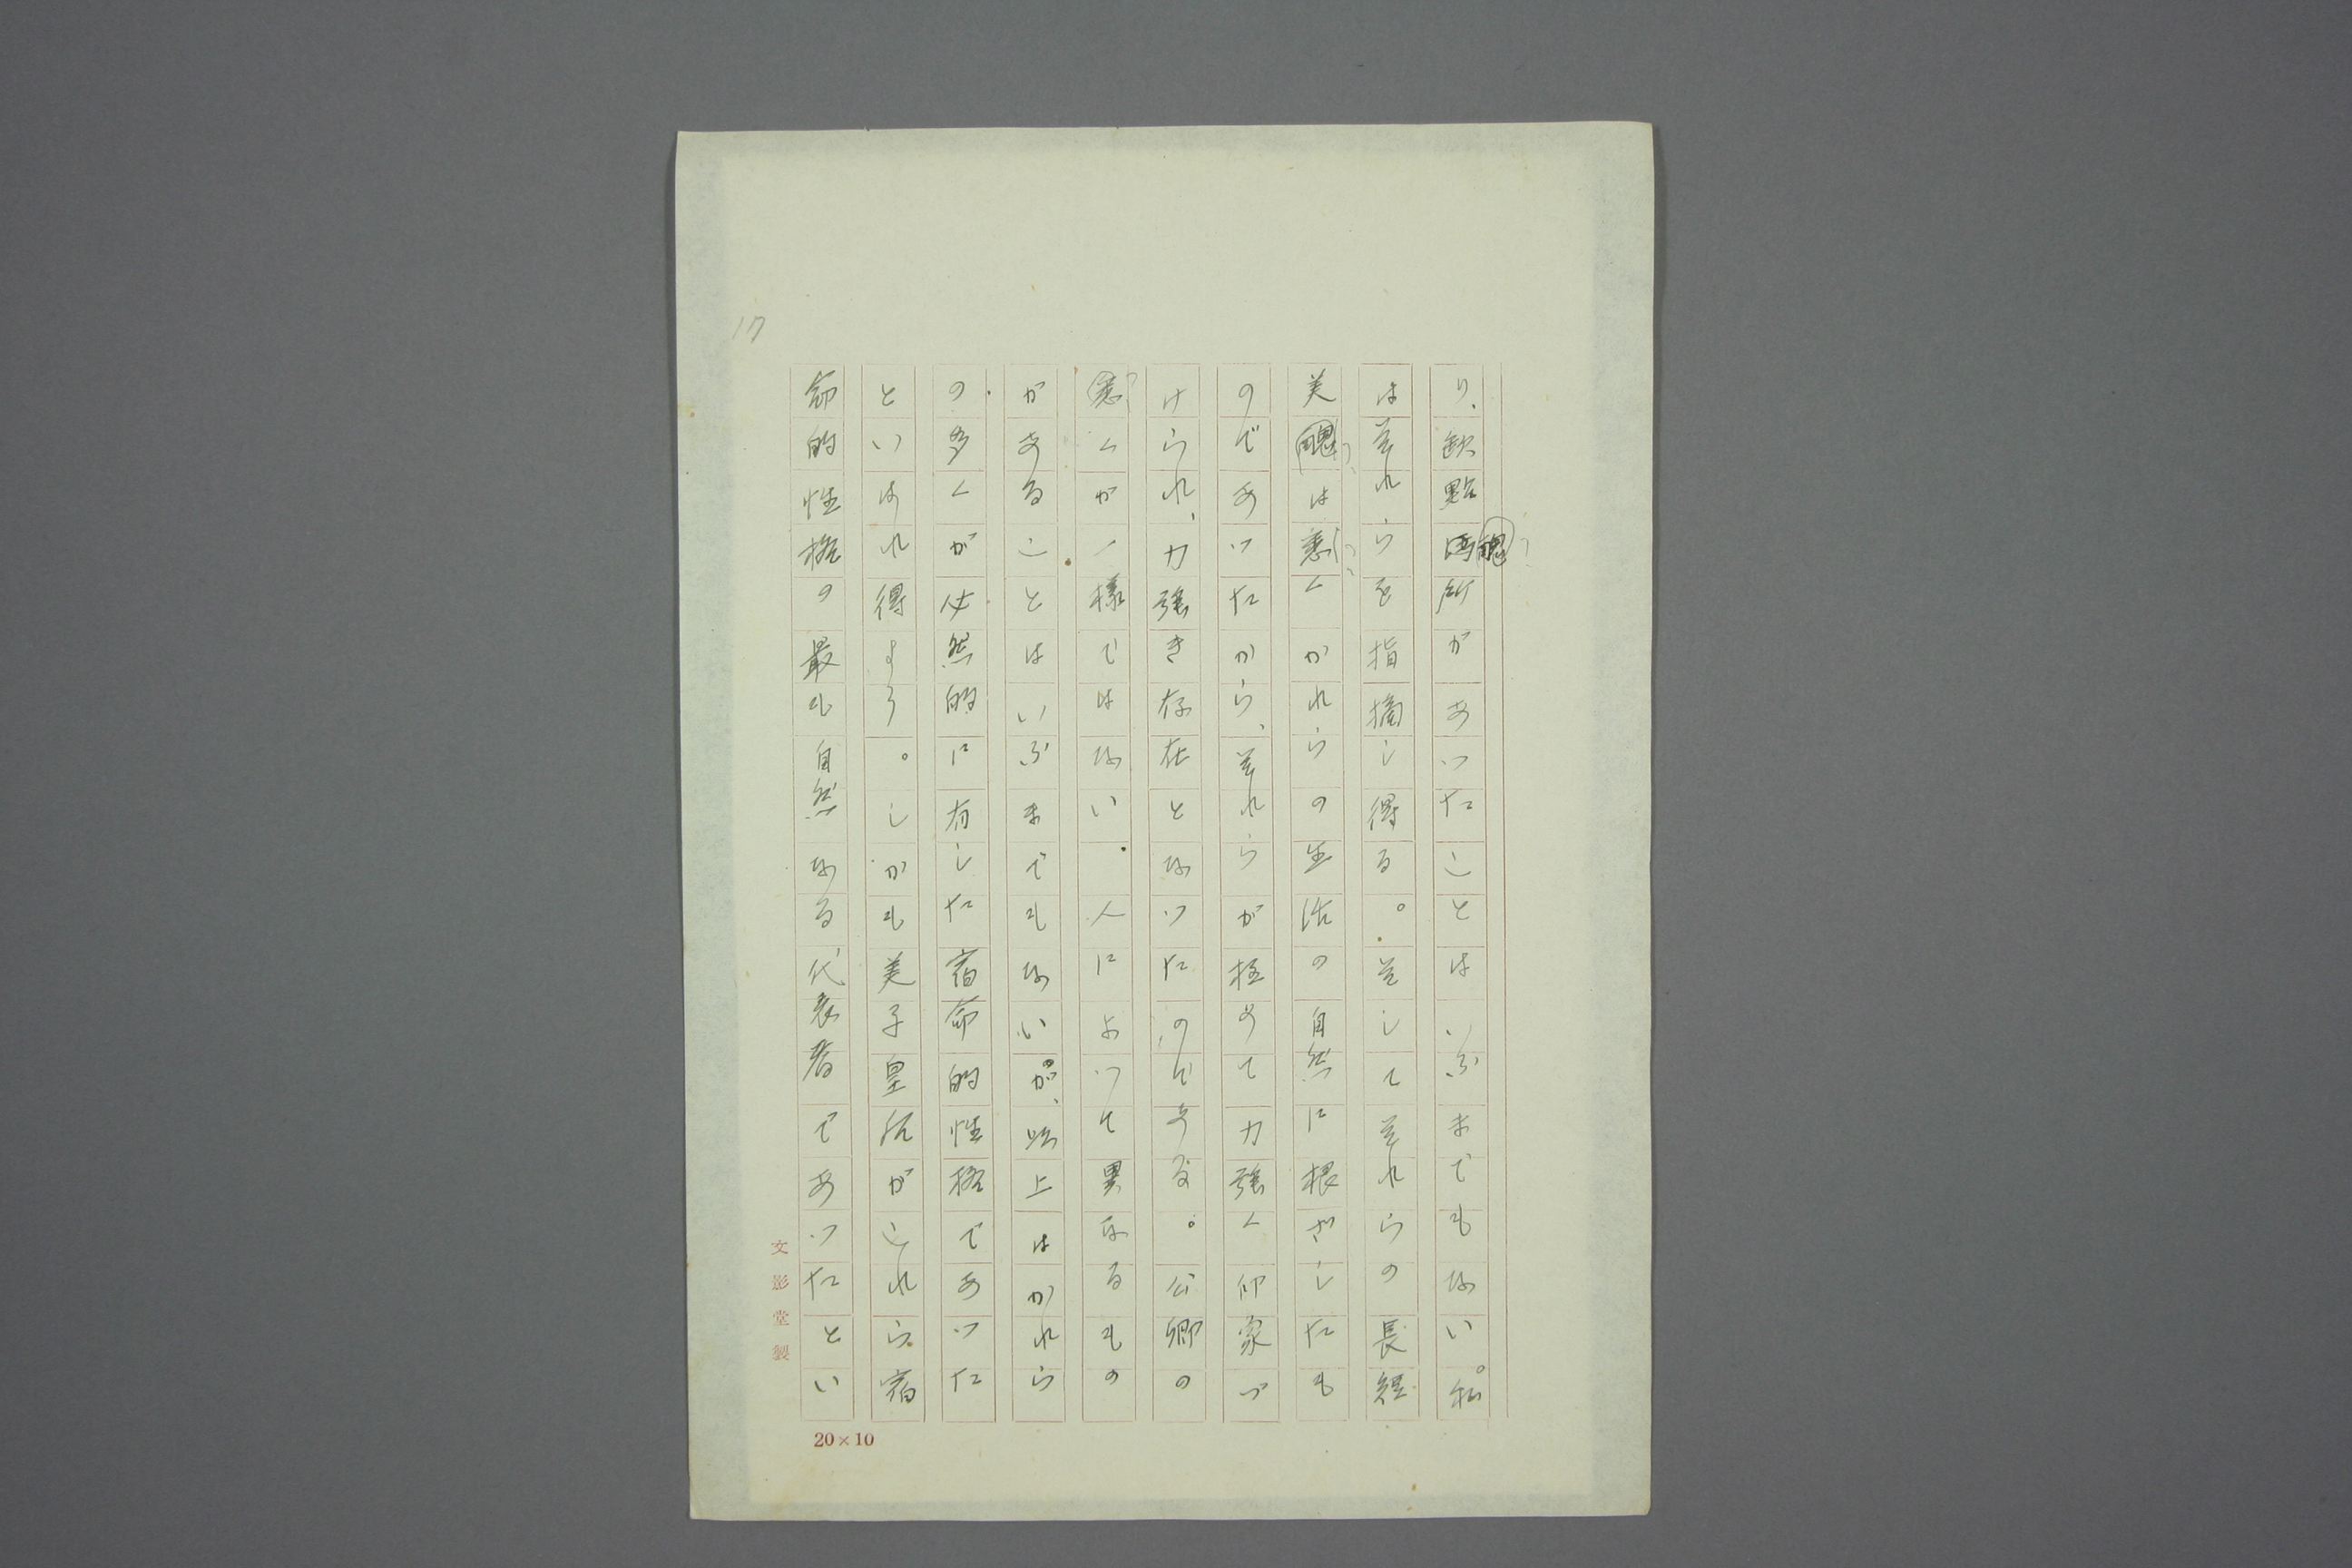 17
り、欽點醜所があつたことはいふまでもない。私
はそれらを指摘し得る。そしてそれらの長短
美醜は悪くかれらの生活の自然に根ざしたも
のであつたから、それらが極めて力強く印象づ
けられ、力強き存在となつたのである。公卿の
悪くが一樣ではない。人によつて異なるもの
があることはいふまでもない。が、以上はかれら
の多くが必然的に有した宿命的性格であつた
といはれ得よう。しかも美子皇后がこれら宿
命的性格の最も自然なる代表者であつたとい
文影堂製
20×10